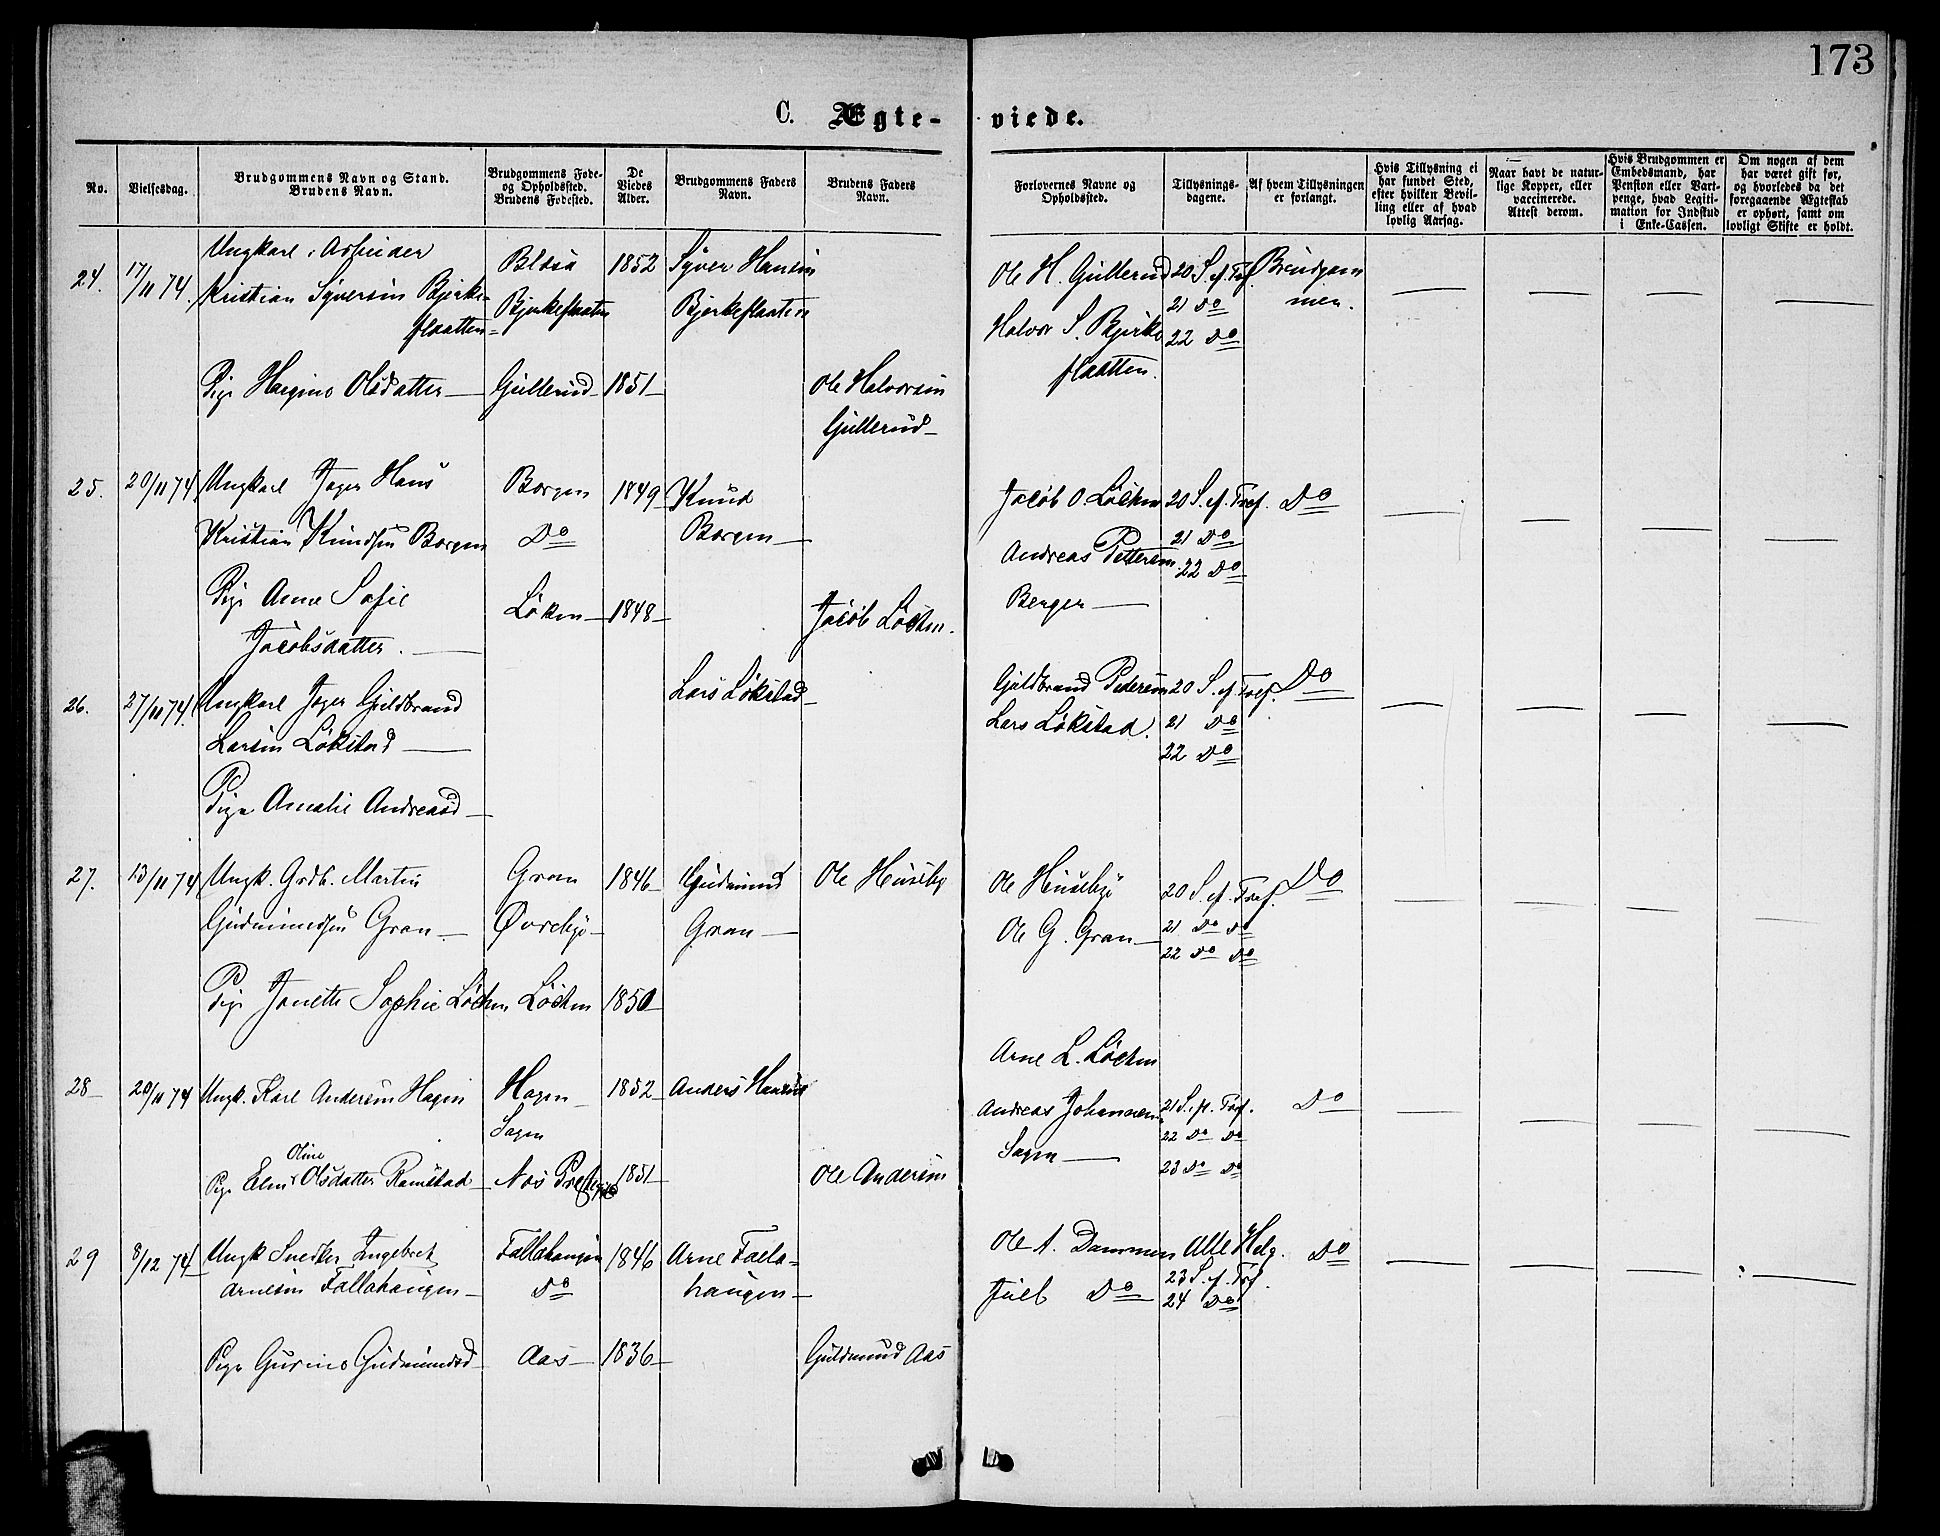 173
C. Ægte- viede.
No.
Vielsesdag.
Brudgommens Navn og Stand.
Brudens Navn.
Brudgommens Føde-
og Opholdssted.
Brudens Fødested.
De
Viedes
Alder.
Brudgommens Faders
Navn.
Brudens Faders
Navn.
Forlovernes Navne og
Opholdssted.
Tillysnings-
dagene.
Af hvem Tillysningen
er forlangt.
Hvis Tillysning ei
har fundet Sted,
efter hvilken Bevil-
ling eller af hvad
lovlig Aarsag.
Naar havt de natur-
lige Kopper, eller
vaccinerede.
Attest derom.
Hvis Brudgommen er
Embedsmand, har
Pension eller Vart-
penge, hvad Legiti-
mation for Indskud
i Enke-Cassen.
Om nogen af dem
har været gift før,
og hvorledes da det
foregaaende Ægteskab
er ophørt, samt om
lovligt Skifte er holdt.
24. 17/11 74. Ungkarl. Arbeider
Kristian Syversen Bjerke-
flaatten
Bjerkeflaaten
1852
Syver Hansen
Bjerkeflaaten
Ole H. Gullerud
Halvor S. Bjerke
flaatten.
20 S. ef. Tref.
21 Do
22 Do
Brudgom
men.
Pige Olsdatter Gullerud 1851 Ole Halvorsen
Gullerud
25. 20/11 74 Ungkarl Hans
Kristian Knudsen Borgen
Borgen
Do
1849 Knud
Borgen
Jacob O. Løkken
Andreas Pettersen
Berger
20 S. ef. Tref.
21 Do
22 Do
Do
Pige Anne Sofie
Jacobsdatter.
Løken 1848 Jacob Løken.
26. 27/11 74. Ungkarl Guldbrand
Larsen Løkstad
Lars Løkstad
Guldbrand Pedersen
Lars Løkstad.
20 S. ef. Tref.
21 Do
22 Do
Do
Pige Amalie Andreasd
27. 13/11 74 Ungk. Grdb. Martin
Gudmundsen Gran
Gran
Øvreby
1846 Gudmund
Gran
Ole Huseby
Ole Huseby
Ole G. Gran
20 S. ef. Tref.
21 Do Do
22 Do Do
Do
Pige Janette Sophie Løken Løken 1850
Arne L. Løken
28 20/11 74 Ungk. Karl Andersen Hagen
Hagen
Sagen
1852 Anders
Andreas Johannesen
Sagen
21 S. p. Tref.
22 Do Do
23 Do Do
Do
Oline
Pige Olsdatter Ramstad Nes 1851 Ole Andersen
29 8/12 74 Ungk Snedker Ingebret
Arnesen Fallahaugen
Fallahaugen
Do
1846 Arne Falla-
haugen
Ole A. Dammen
Juel Do
Alle Helg.
23 S. ef. Tref.
24 Do
Do
Pige Gurine Gudmundsd Aas 1836 Guldmund Aas